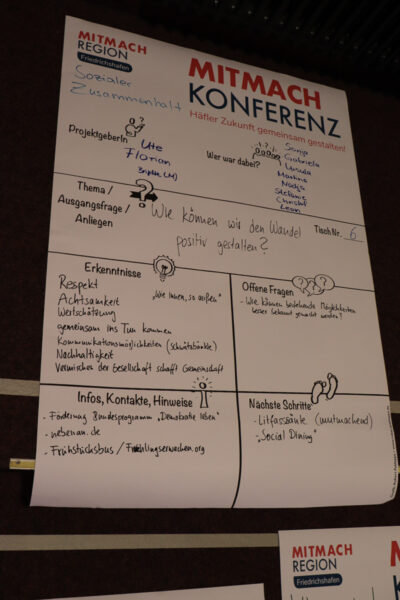 MITMACH
REGION
Friedrichshafen
MITMACH
KONFERENZ
Häfler Zukunft gemeinsam gestalten!
Sozialer
Zusammenhalt
ProjektgeberIn
Ute
Florian
Wer war dabei?
Sonja
Gabriela
Ursula
Martina
Nadja
Stefanie
Christel
Leon
Thema /
Ausgangsfrage /
Anliegen
Wie können wir den Wandel
positiv gestalten?
Tisch Nr. 6
Erkenntnisse
Respekt
Achtsamkeit
"Wie innen, so außen"
Wertschätzung
gemeinsam ins Tun kommen
Kommunikationsmöglichkeiten (Schwätzbänkle)
Nachhaltigkeit
Vermischer der Gesellschaft schafft Gemeinschaft
Offene Fragen
- Wie können bestehende Möglichkeiten
besser bekannt gemacht werden?
Infos, Kontakte, Hinweise
- Förderung Bundesprogramm "Demokratie leben"
- nebenan.de
- Frühstücksbus / Frühlingserwachen.org
Nächste Schritte
- Litfasssäule (mutmachend)
- "Social Dining"
MITMACH
REGION
Friedrichshafen